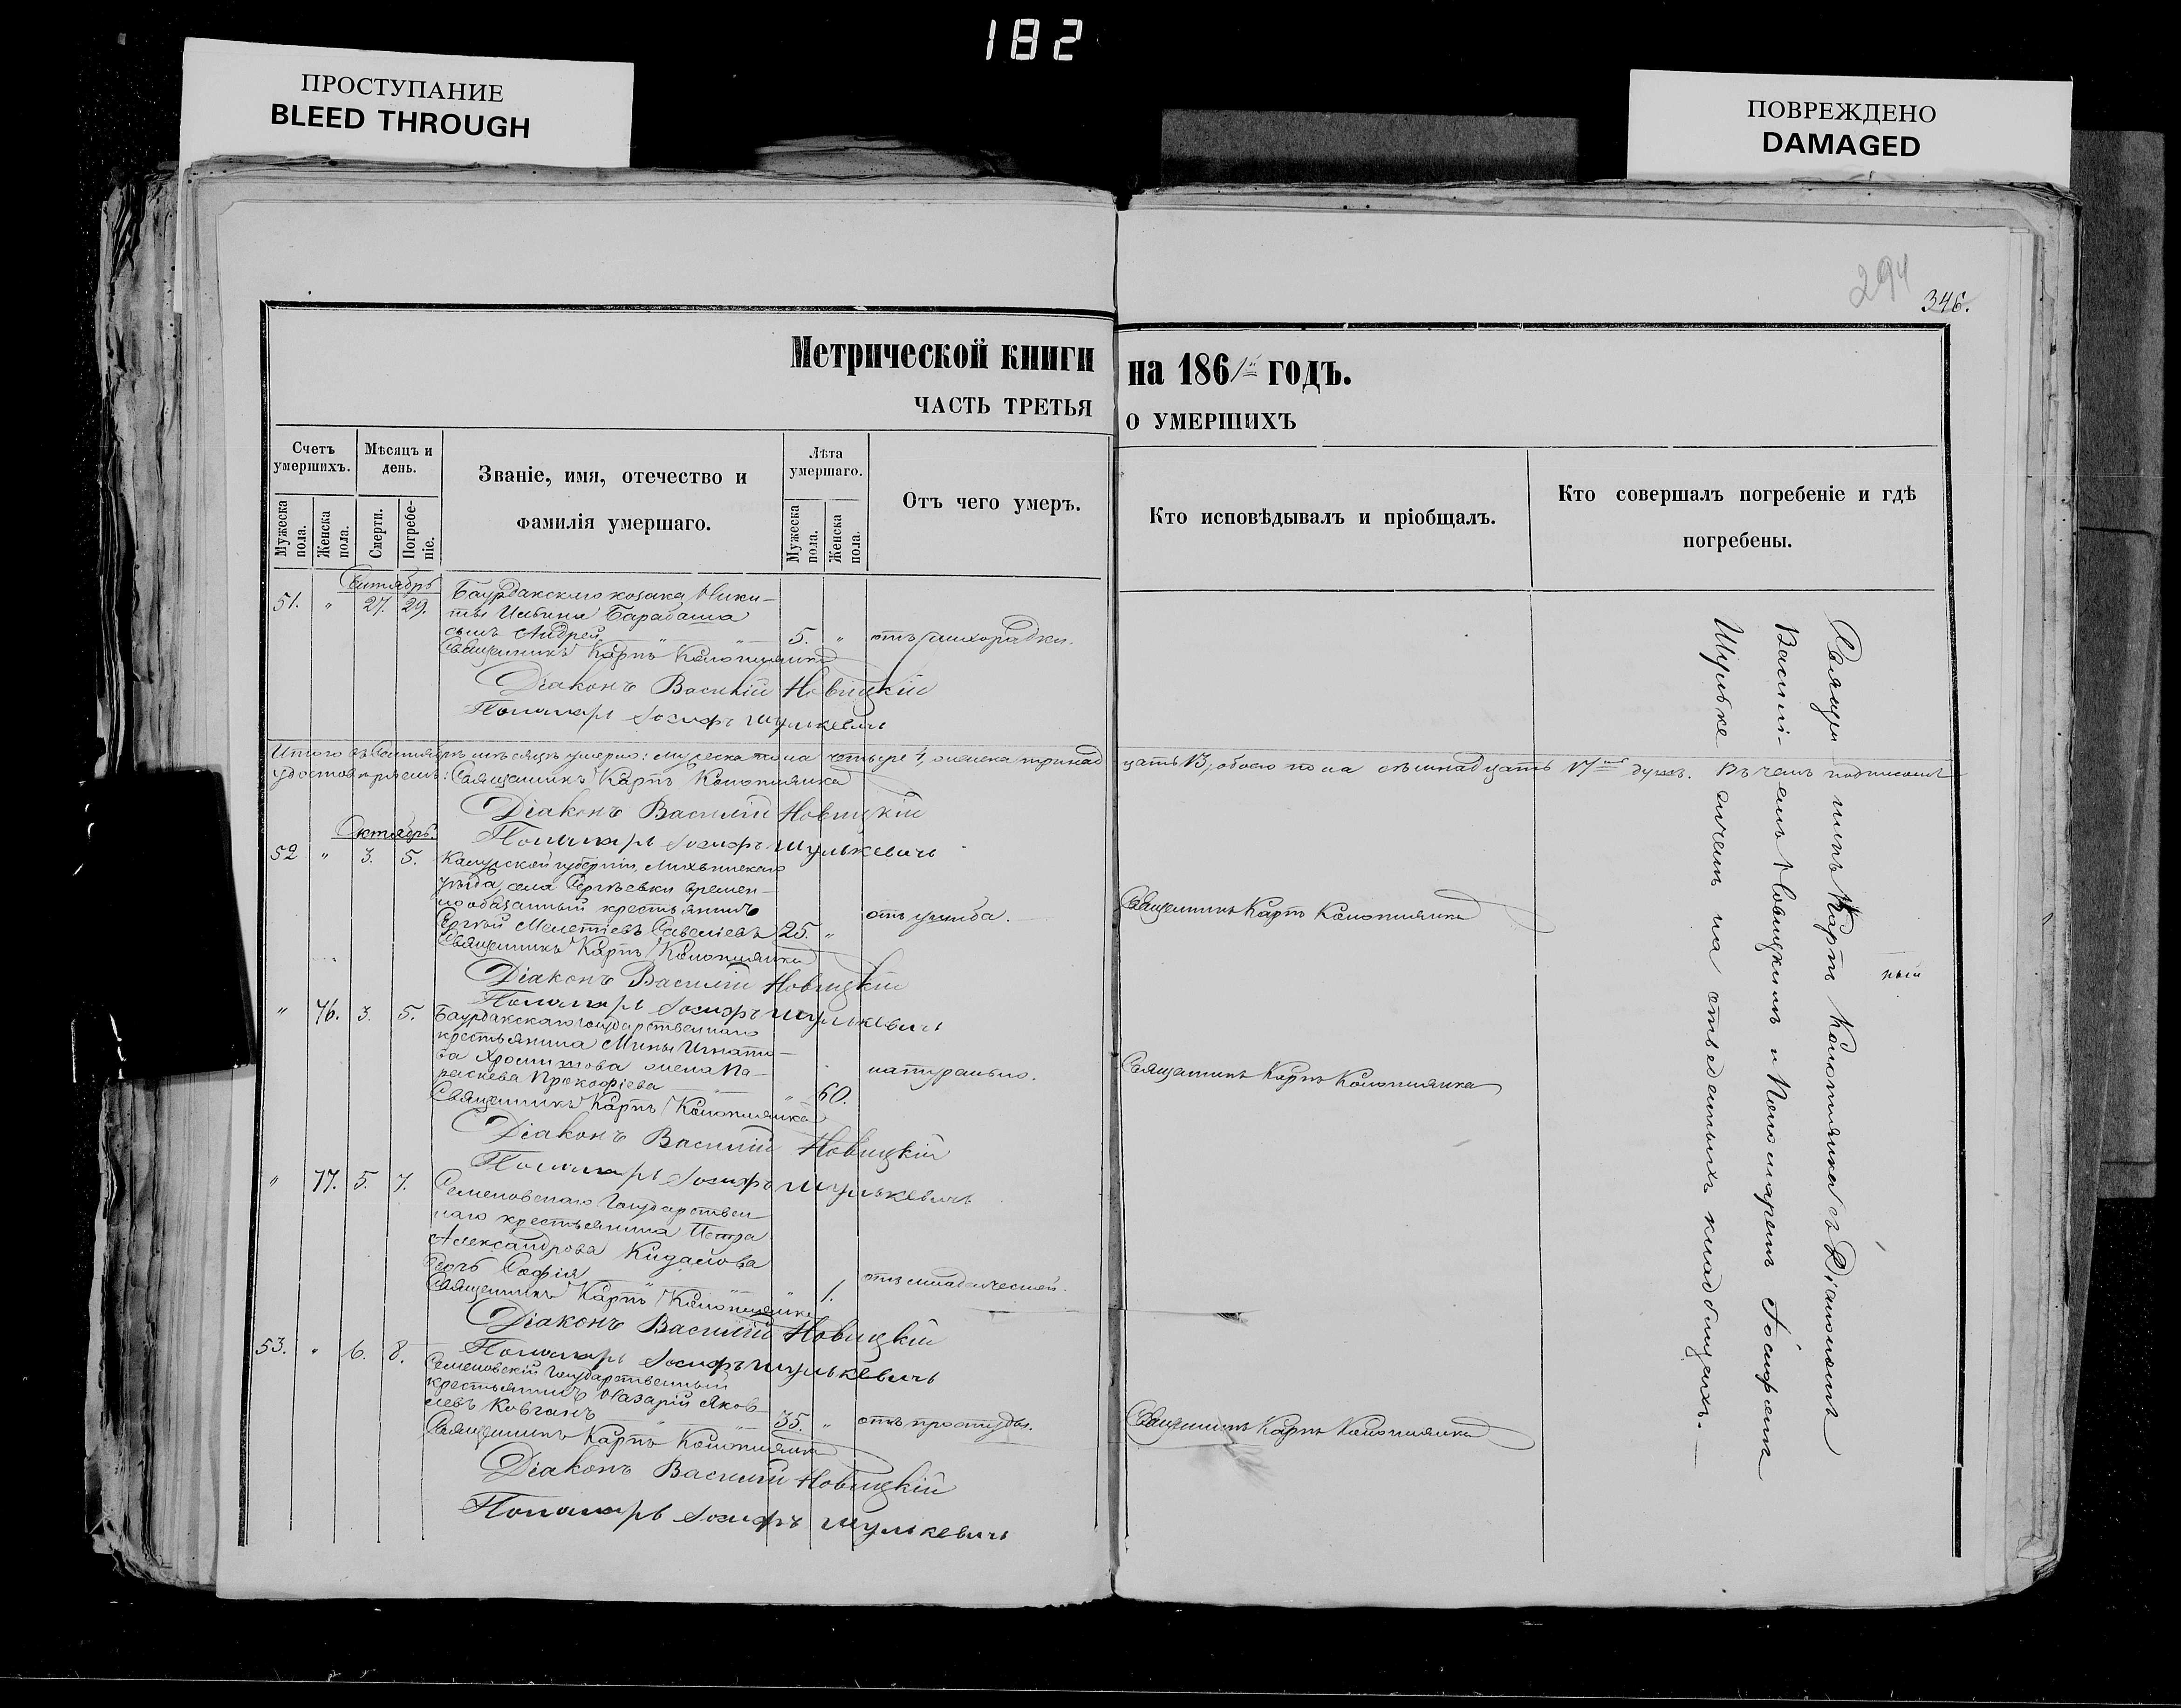 182
ПРОСТУПАНИЕ
BLEED THROUGH
ПОВРЕЖДЕНО
DAMAGED
294
346.
Метрической книги на 1861й годъ.
ЧАСТЬ ТРЕТЬЯ О УМЕРШИХЪ
Счетъ умершихъ.
Мужеска пола.
Женска пола.
Мѣсяцъ и день.
Смерти.
Погребе-ніе.
Званіе, имя, отечество и
фамилія умершаго.
Лѣта умершаго.
Мужеска пола.
Женска пола.
Отъ чего умеръ.
Кто исповѣдывалъ и пріобщалъ.
Кто совершалъ погребеніе и гдѣ
погребены.
Сентябрь
51. " 27. 29. Баурдакскаго козака Ники-
ты Барабаша
сынъ Андрей 5. " отъ лихорадки.
Священникъ Карпъ Коноплянка
Діаконъ Василій Новицкій
Пономарь Іосифъ Шулькевичъ
Итого въ Сентябрѣ мѣсяцѣ умерло: мужеска пола четыре 4, женска тринад цать 13, обоего пола семнадцать 17 душъ. Въ чемъ подписомъ
удостовѣряемъ: Священникъ Карпъ Коноплянка
Діаконъ Василій Новицкій
Пономарь Іосифъ Шулькевичъ
Октябрь.
52 " 3. 5. Калужской губерніи, Лихвинскаго
уѣзда, села Сергѣевки времен-
нообязанный крестьянинъ
Сергѣй Мелетіевъ Савеліевъ 25. " отъ ушиба. Священникъ Карпъ Коноплянка
Священникъ Карпъ Коноплянка
Діаконъ Василій Новицкій
Пономарь Іосифъ Шулькевичъ
" 76. 3. 5. Баурдакскаго государственнаго
крестьянина Мины Игнатіе-
ва жена Па-
раскева Прокофіева " 60. натурально. Священникъ Карпъ Коноплянка
Священникъ Карпъ Коноплянка
Діаконъ Василій Новицкій
Пономарь Іосифъ Шулькевичъ
" 77. 5. 7. Семеновскаго Государствен
наго крестьянина Петра
Александрова Кидалова
дочь Софія " 1. отъ младенческой.
Священникъ Карпъ Коноплянка
Діаконъ Василій Новицкій
Пономарь Іосифъ Шулькевичъ
53. " 6. 8. Семеновскій Государственный
крестьянинъ Назарій Яков-
левъ Ковганъ 35. " отъ простуды. Священникъ Карпъ Коноплянка
Священникъ Карпъ Коноплянка
Діаконъ Василій Новицкій
Пономарь Іосифъ Шулькевичъ
Священникъ Карпъ Коноплянка съ Діакономъ
Василіемъ Новицкимъ и Пономаремъ Іосифомъ
Шулькевичемъ на отведенныхъ кладбищахъ.
ный